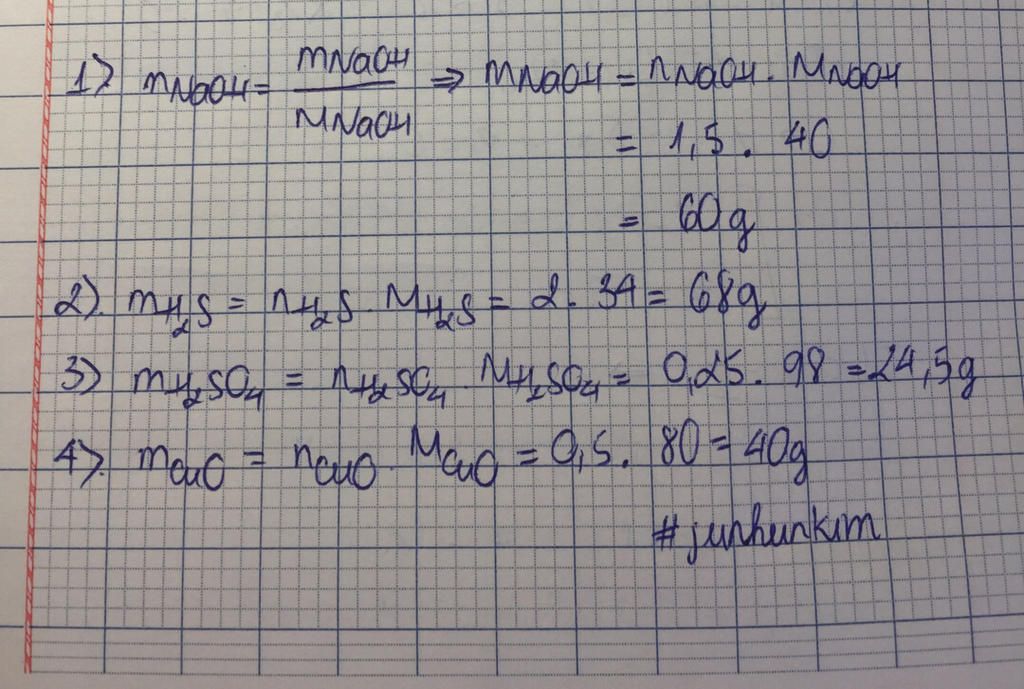 1) mNaOH = mNaOH / MNaOH ⇒ mNaOH = nNaOH . MNaOH
= 1,5 . 40
= 60g
2). mH₂S = nH₂S . MH₂S = 2 . 34 = 68g
3) mH₂SO₄ = nH₂SO₄ . MH₂SO₄ = 0,25 . 98 = 24,5g
4). mCuO = nCuO . MCuO = 0,5 . 80 = 40g
#junhunkim